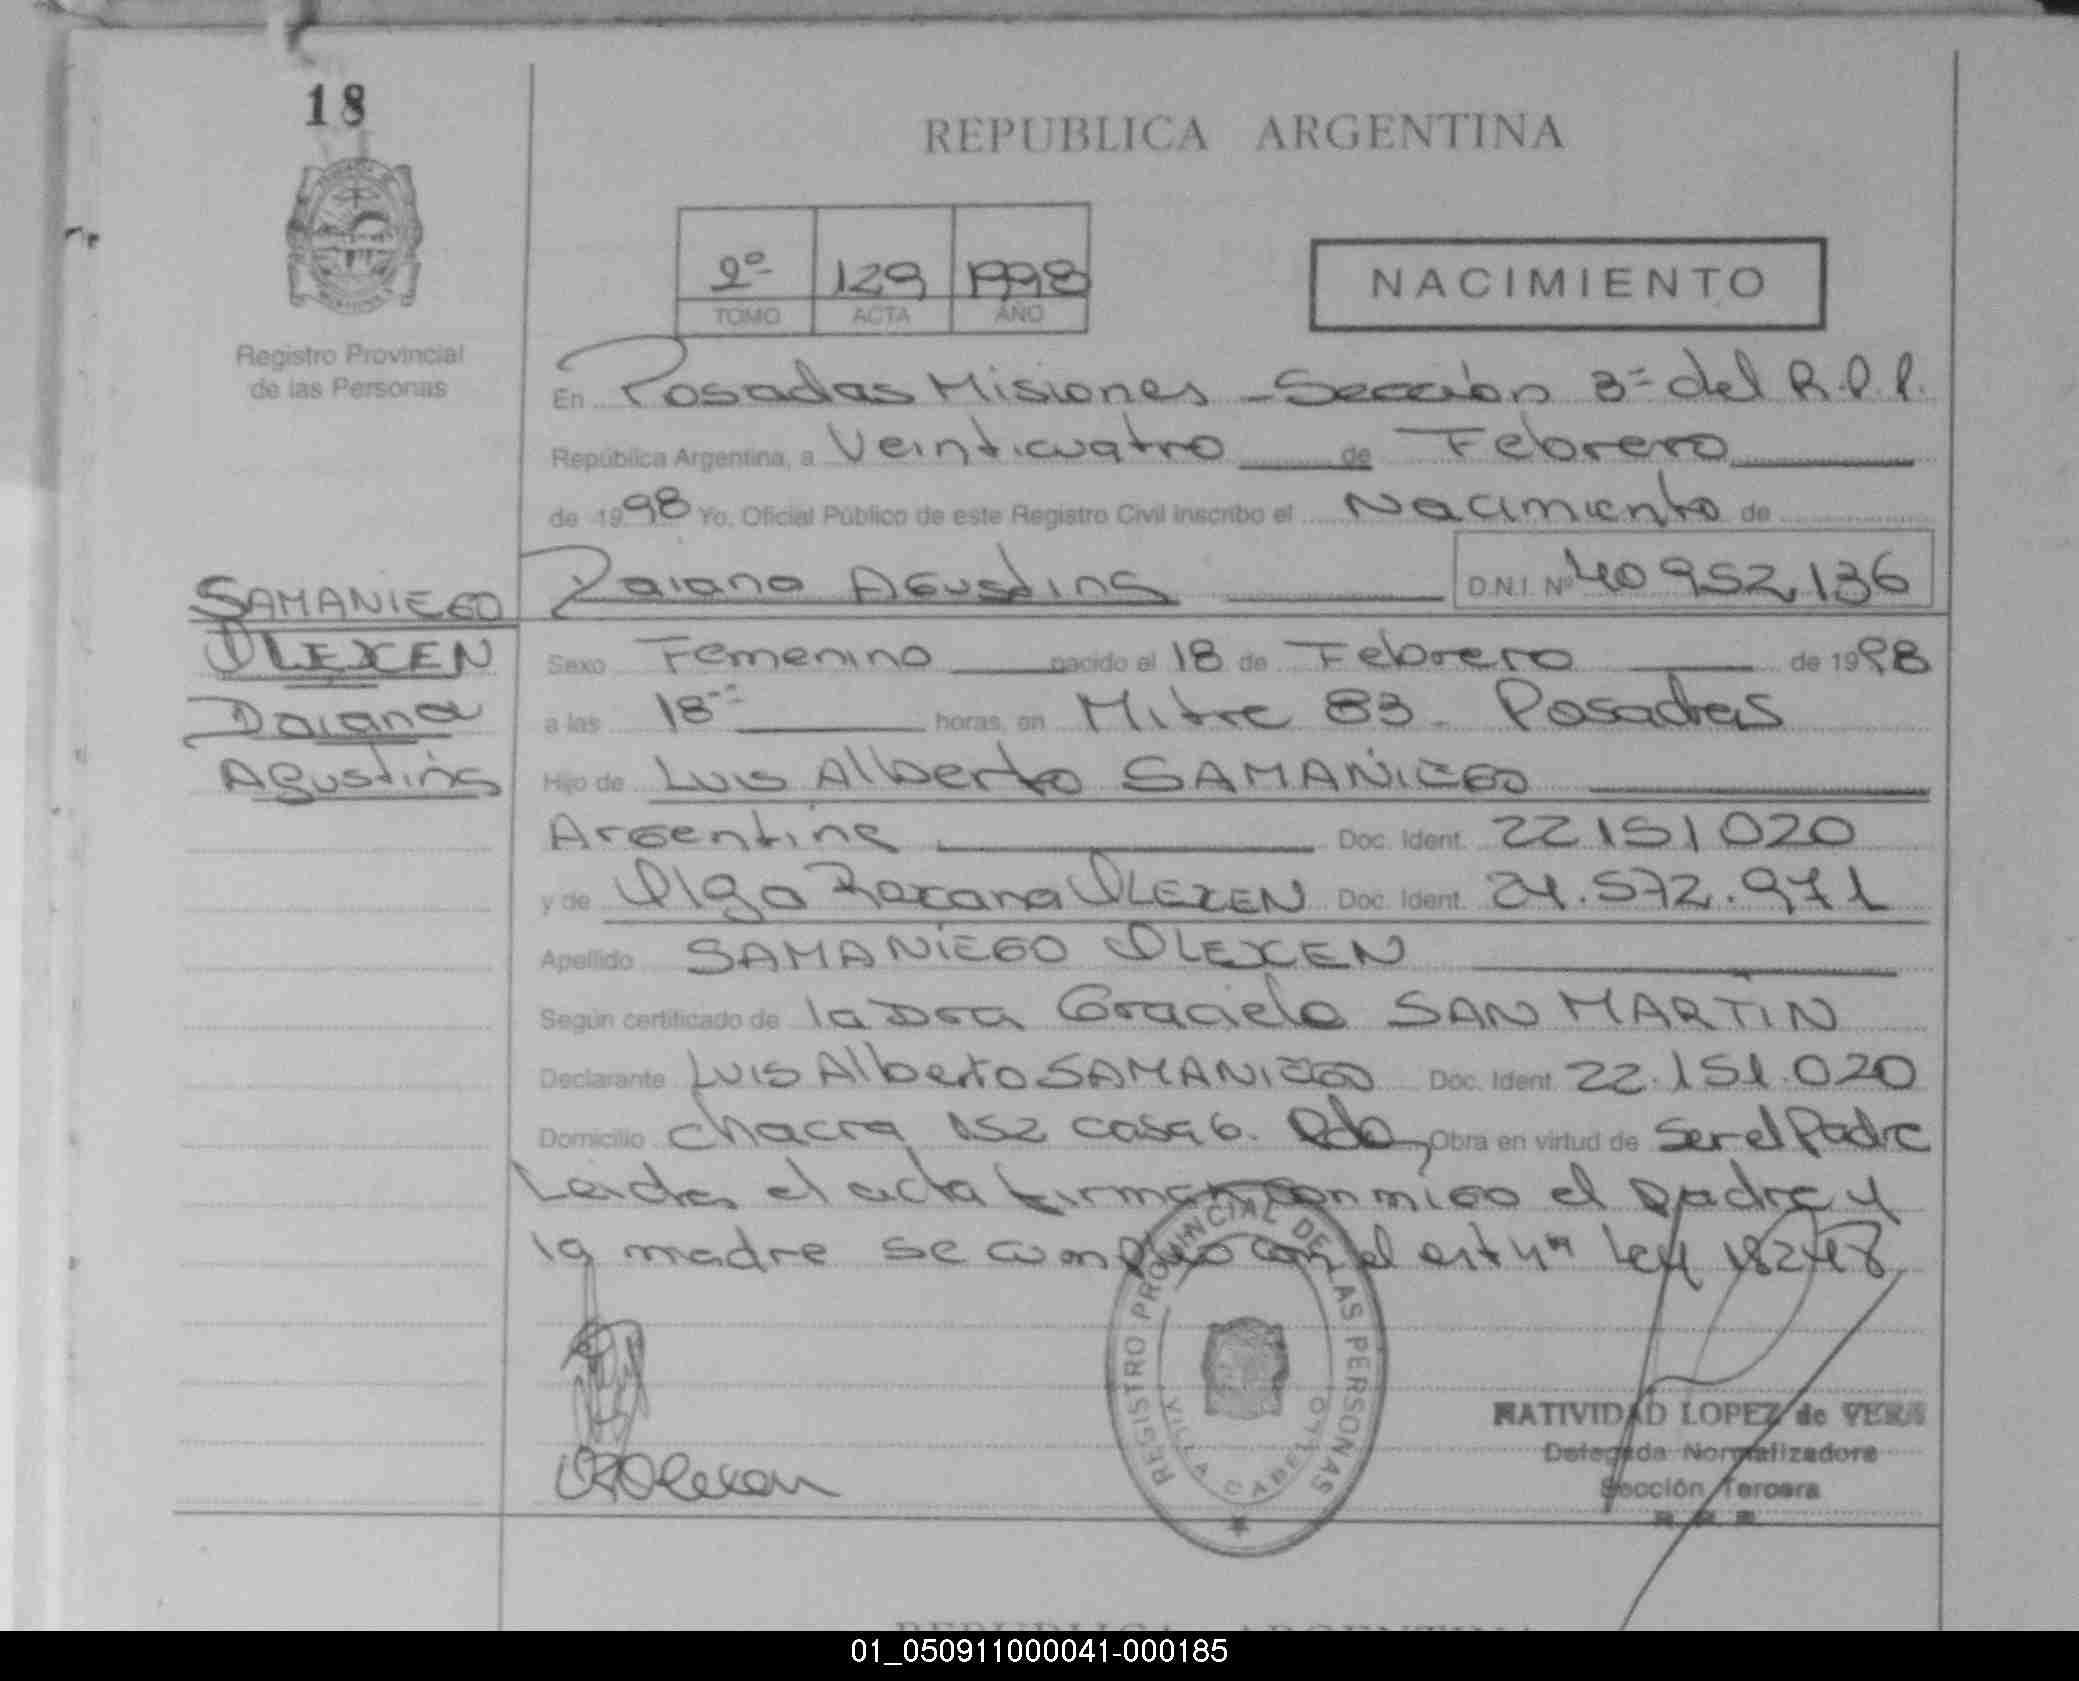 18
REPUBLICA ARGENTINA
2º 129 1998
TOMO ACTA AÑO
NACIMIENTO
Registro Provincial
de las Personas
En Posadas Misiones - Sección 3ª del R.P.P.
República Argentina, a Veinticuatro de Febrero
de 1998 Yo, Oficial Público de este Registro Civil inscribo el Nacimiento de
Daiana Agustina D.N.I. Nº 40952,136
SAMANIEGO
OLEXEN
Daiana
Agustina
Sexo Femenino nacido el 18 de Febrero de 1998
a las 18 horas, en Mitre 83 - Posadas
Hijo de Luis Alberto SAMANIEGO
Argentina Doc. Ident. 22151020
y de Olga Roxana OLEXEN Doc. Ident. 24.572.971
Apellido SAMANIEGO OLEXEN
Según certificado de la Dra Graciela SAN MARTIN
Declarante Luis Alberto SAMANIEGO Doc. Ident. 22.151.020
Domicilio chacra 152 casa 6. Pdas Obra en virtud de ser el Padre
Leida el acta firman conmigo el padre y
la madre se cumplio con el art 4º Ley 18248
REGISTRO PROVINCIAL DE LAS PERSONAS
VILLA CABELLO
ROlexen
NATIVIDAD LOPEZ de VERA
Delegada Normalizadora
Sección Tercera
REPUBLICA ARGENTINA
01_050911000041-000185